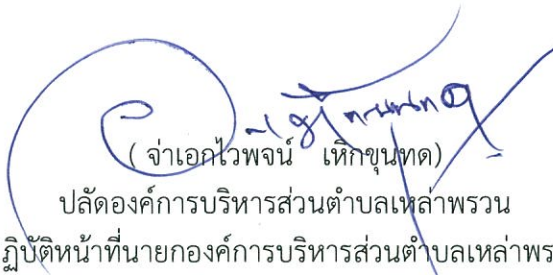 ( จ่าเอกไวพจน์ เหิกขุนทด)
ปลัดองค์การบริหารส่วนตำบลเหล่าพรวน
ฏิบัติหน้าที่นายกองค์การบริหารส่วนตำบลเหล่าพร